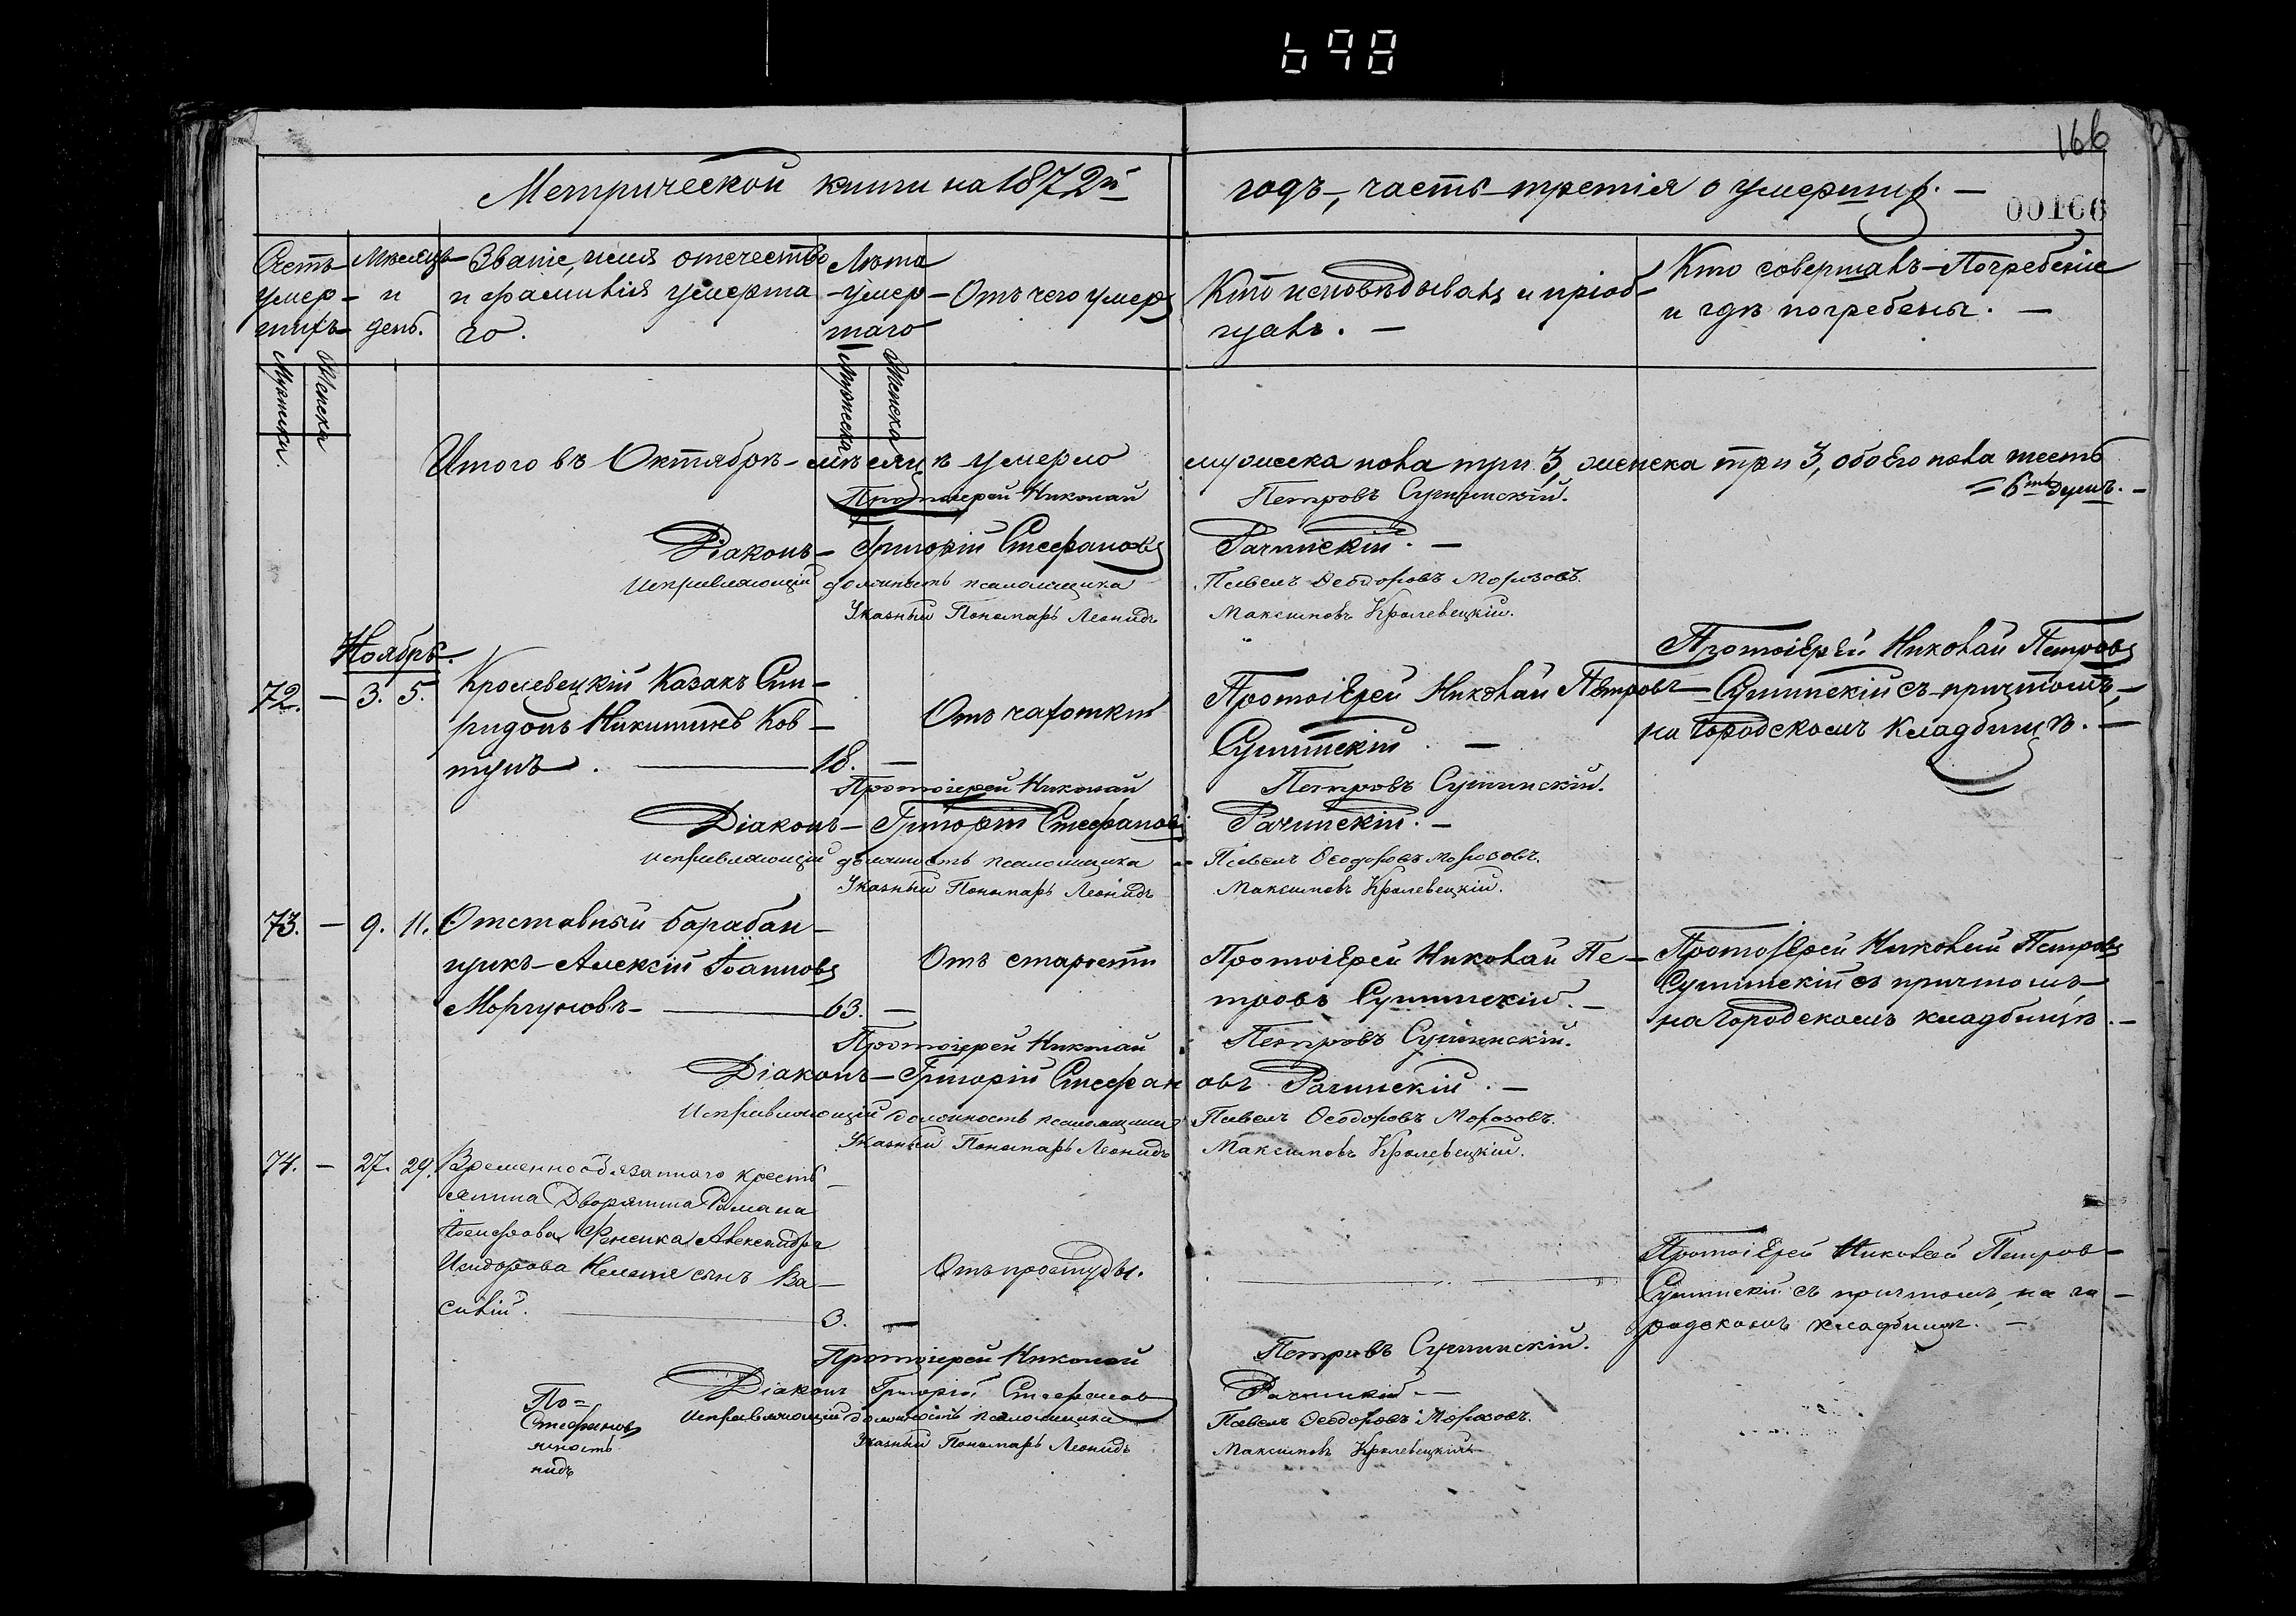 698
166
00166
Метрической книги на 1872й годъ, часть третія о умершихъ.
Счетъ умершихъ
Мѣсяцъ и день.
Званіе, имя отечество и фамилія умершаго.
Лѣта умершаго
Отъ чего умеръ
Кто исповѣдывалъ и пріобщалъ.
Кто совершалъ Погребеніе и гдѣ погребены.
Мужеска.
Женска
Мужеска
Женска
Итого въ Октябрѣ мѣсяцѣ умерло мужеска пола три 3, женска три 3, обоего пола шесть
= 6ть душъ.
Протоіерей Николай Петровъ Сушинскій.
Діаконъ Григорій Стефановъ Рачинскій.
Исправляющій должность псаломщика Павелъ Ѳеодоровъ Морозовъ.
Указный Пономарь Леонидъ Максимовъ Кролевецкій.
Ноябрь.
72. — 3. 5.
Кролевецкій Казакъ Спи-
ридонъ Никитинъ Ков-
тунъ. 18. —
Отъ чахотки
Протоіерей Николай Петровъ
Сушинскій.
Протоіерей Николай Петровъ
Сушинскій съ причтомъ,
на Городскомъ Кладбищѣ.
Протоіерей Николай Петровъ Сушинскій.
Діаконъ Григорій Стефановъ Рачинскій.
Исправляющій должность псаломщика Павелъ Ѳеодоровъ Морозовъ.
Указный Пономарь Леонидъ Максимовъ Кролевецкій.
73. — 9. 11.
Отставный барабан-
щикъ Алексій Іоанновъ
Моргуновъ 63. —
Отъ старости
Протоіерей Николай Пе-
тровъ Сушинскій.
Протоіерей Николай Петровъ
Сушинскій съ причтомъ
на Городскомъ кладбищѣ.
Протоіерей Николай Петровъ Сушинскій.
Діаконъ Григорій Стефановъ Рачинскій.
Исправляющій должность псаломщика Павелъ Ѳеодоровъ Морозовъ.
Указный Пономарь Леонидъ Максимовъ Кролевецкій.
74. — 27. 29.
Временнообязаннаго крестъ-
янина Дворянина Романа
Александра
Исидорова сынъ Ва-
силій. 3. —
Отъ простуды.
Протоіерей Николай Петров-
Сушинскій съ причтомъ, на го-
родскомъ кладбищѣ.
Протоіерей Николай Петровъ Сушинскій.
Діаконъ Григорій Стефановъ Рачинскій
Исправляющій должность псаломщика Павелъ Ѳеодоровъ Морозовъ.
Указный Пономарь Леонидъ Максимовъ Кролевецкій
По=
Стефановъ
жность
нидъ